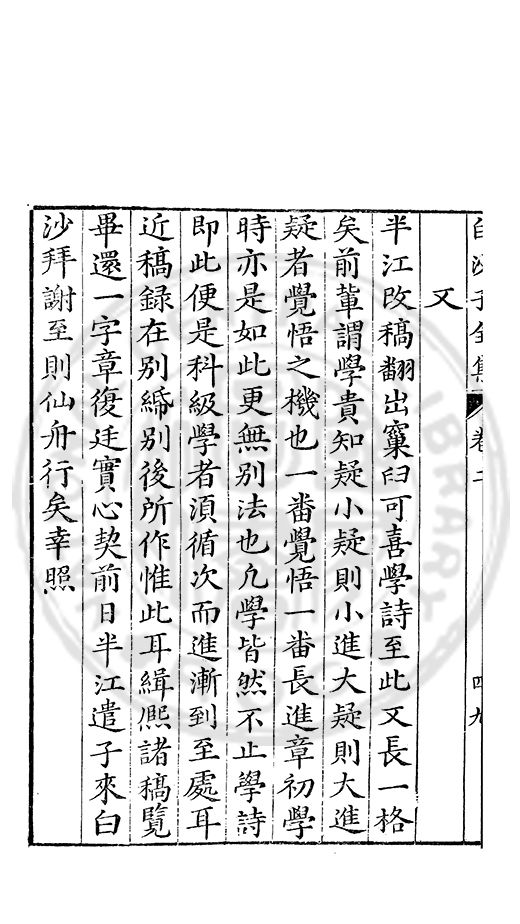 白沙子全集 卷二 四九
又
半江改稿翻出窠臼可喜學詩至此又長一格
矣前輩謂學貴知疑小疑則小進大疑則大進
疑者覺悟之機也一番覺悟一番長進章初學
時亦是如此更無別法也凢學皆然不止學詩
即此便是科級學者湏循次而進漸到至處耳
近稿録在别緜别後所作惟此耳緝熈諸稿覽
畢還一字章復廷實心契前日半江遣子來白
沙拜謝至則仙舟行矣幸照